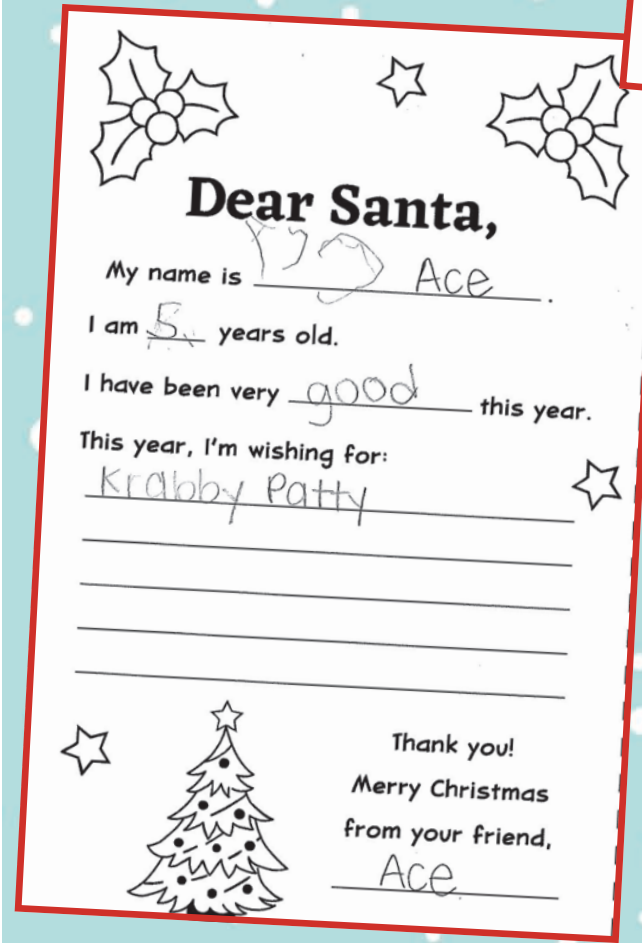 Dear Santa,
My name is Ace.
I am 5 years old.
I have been very good this year.
This year, I'm wishing for:
Krabby Patty
Thank you!
Merry Christmas
from your friend,
Ace